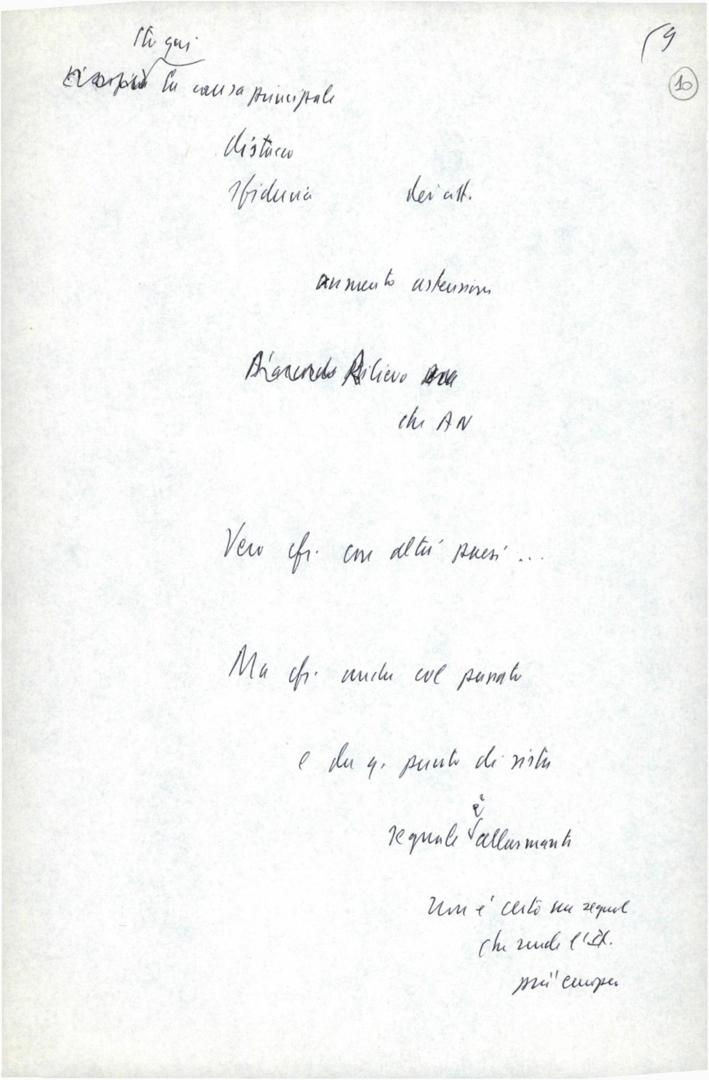 Sta qui
la causa principale
distacco
sfiducia dei citt.
aumento astensioni
Rilievo
che AN
Vero cfr. con altri paesi ...
Ma cfr. anche col passato
e da q. punto di vista
segnale è allarmante
Non è certo un segnale
che rende l'It.
più europea
9
10